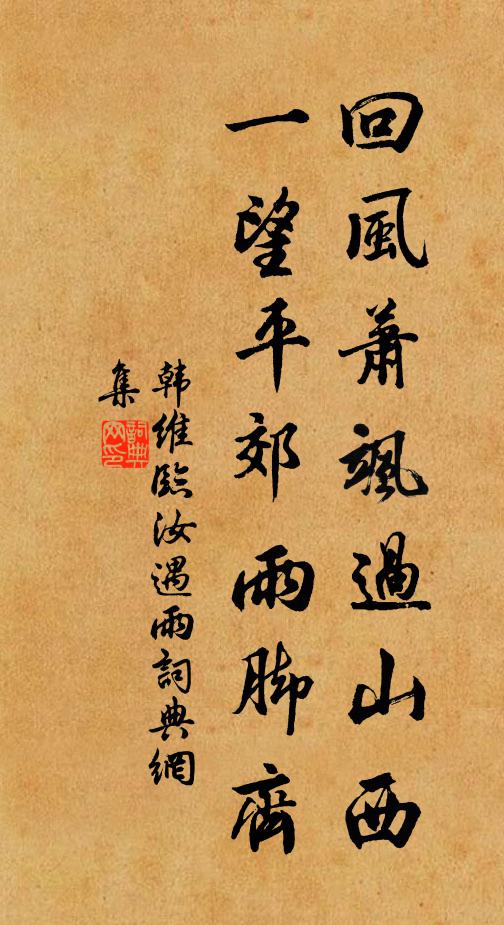 回風蕭颯過山西
一望平郊雨脚齊
韩維臨汝遇雨詞典網
集
詞典
网印